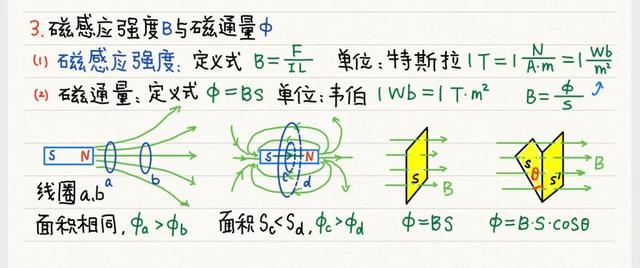 3.磁感应强度B与磁通量Φ
(1) 磁感应强度: 定义式 B=F/IL 单位:特斯拉 1T=1 N/A·m =1 Wb/m²
(2) 磁通量:定义式 Φ=BS 单位:韦伯 1Wb=1T·m² B=Φ/S
S N a b
S N c d
S B
S θ S' B
线圈a、b
面积相同,Φa>Φb 面积Sc<Sd,Φc>Φd Φ=BS Φ=B·S·cosθ